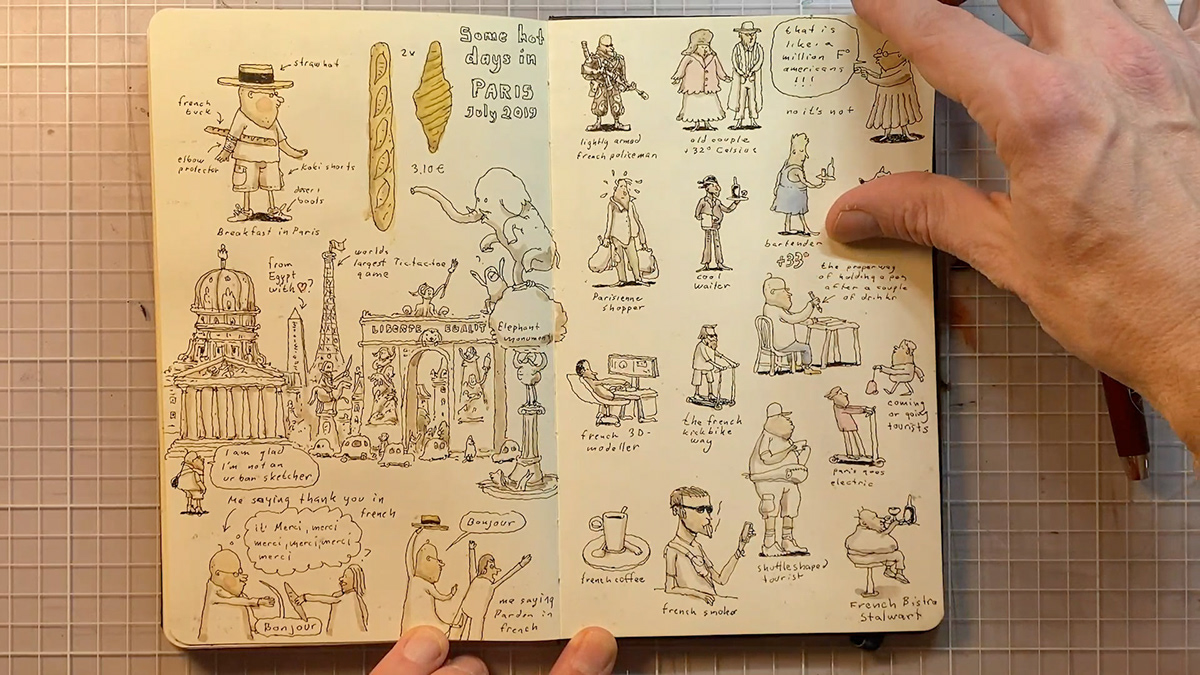 Some hot
days in
PARIS
July 2019
straw hat
french
buck
elbow
protector
kaki shorts
boots
Breakfast in Paris
2x
3,10€
from
Egypt
with ♡?
worlds
largest Tictactoe
game
LIBERTE EGALIT
Elephant
monument
I am glad
I'm not an
urban sketcher
Me saying thank you in
french
it! Merci, merci
merci, merci, merci
merci
?
Bonjour
Bonjour
me saying
Pardon in
french
lightly armed
french policeman
old couple
+32° Celsius
that is
like a
million F°
americans
!!!
no it's not
Parisienne
shopper
cool
waiter
bartender
+33°
the proper way
of holding a pen
after a couple
of drinks
french 3D-
modeller
the french
kickbike
way
coming
or going
tourists
paris goes
electric
french coffee
french smoker
shuttleshaped
tourist
French Bistro
Stalwart